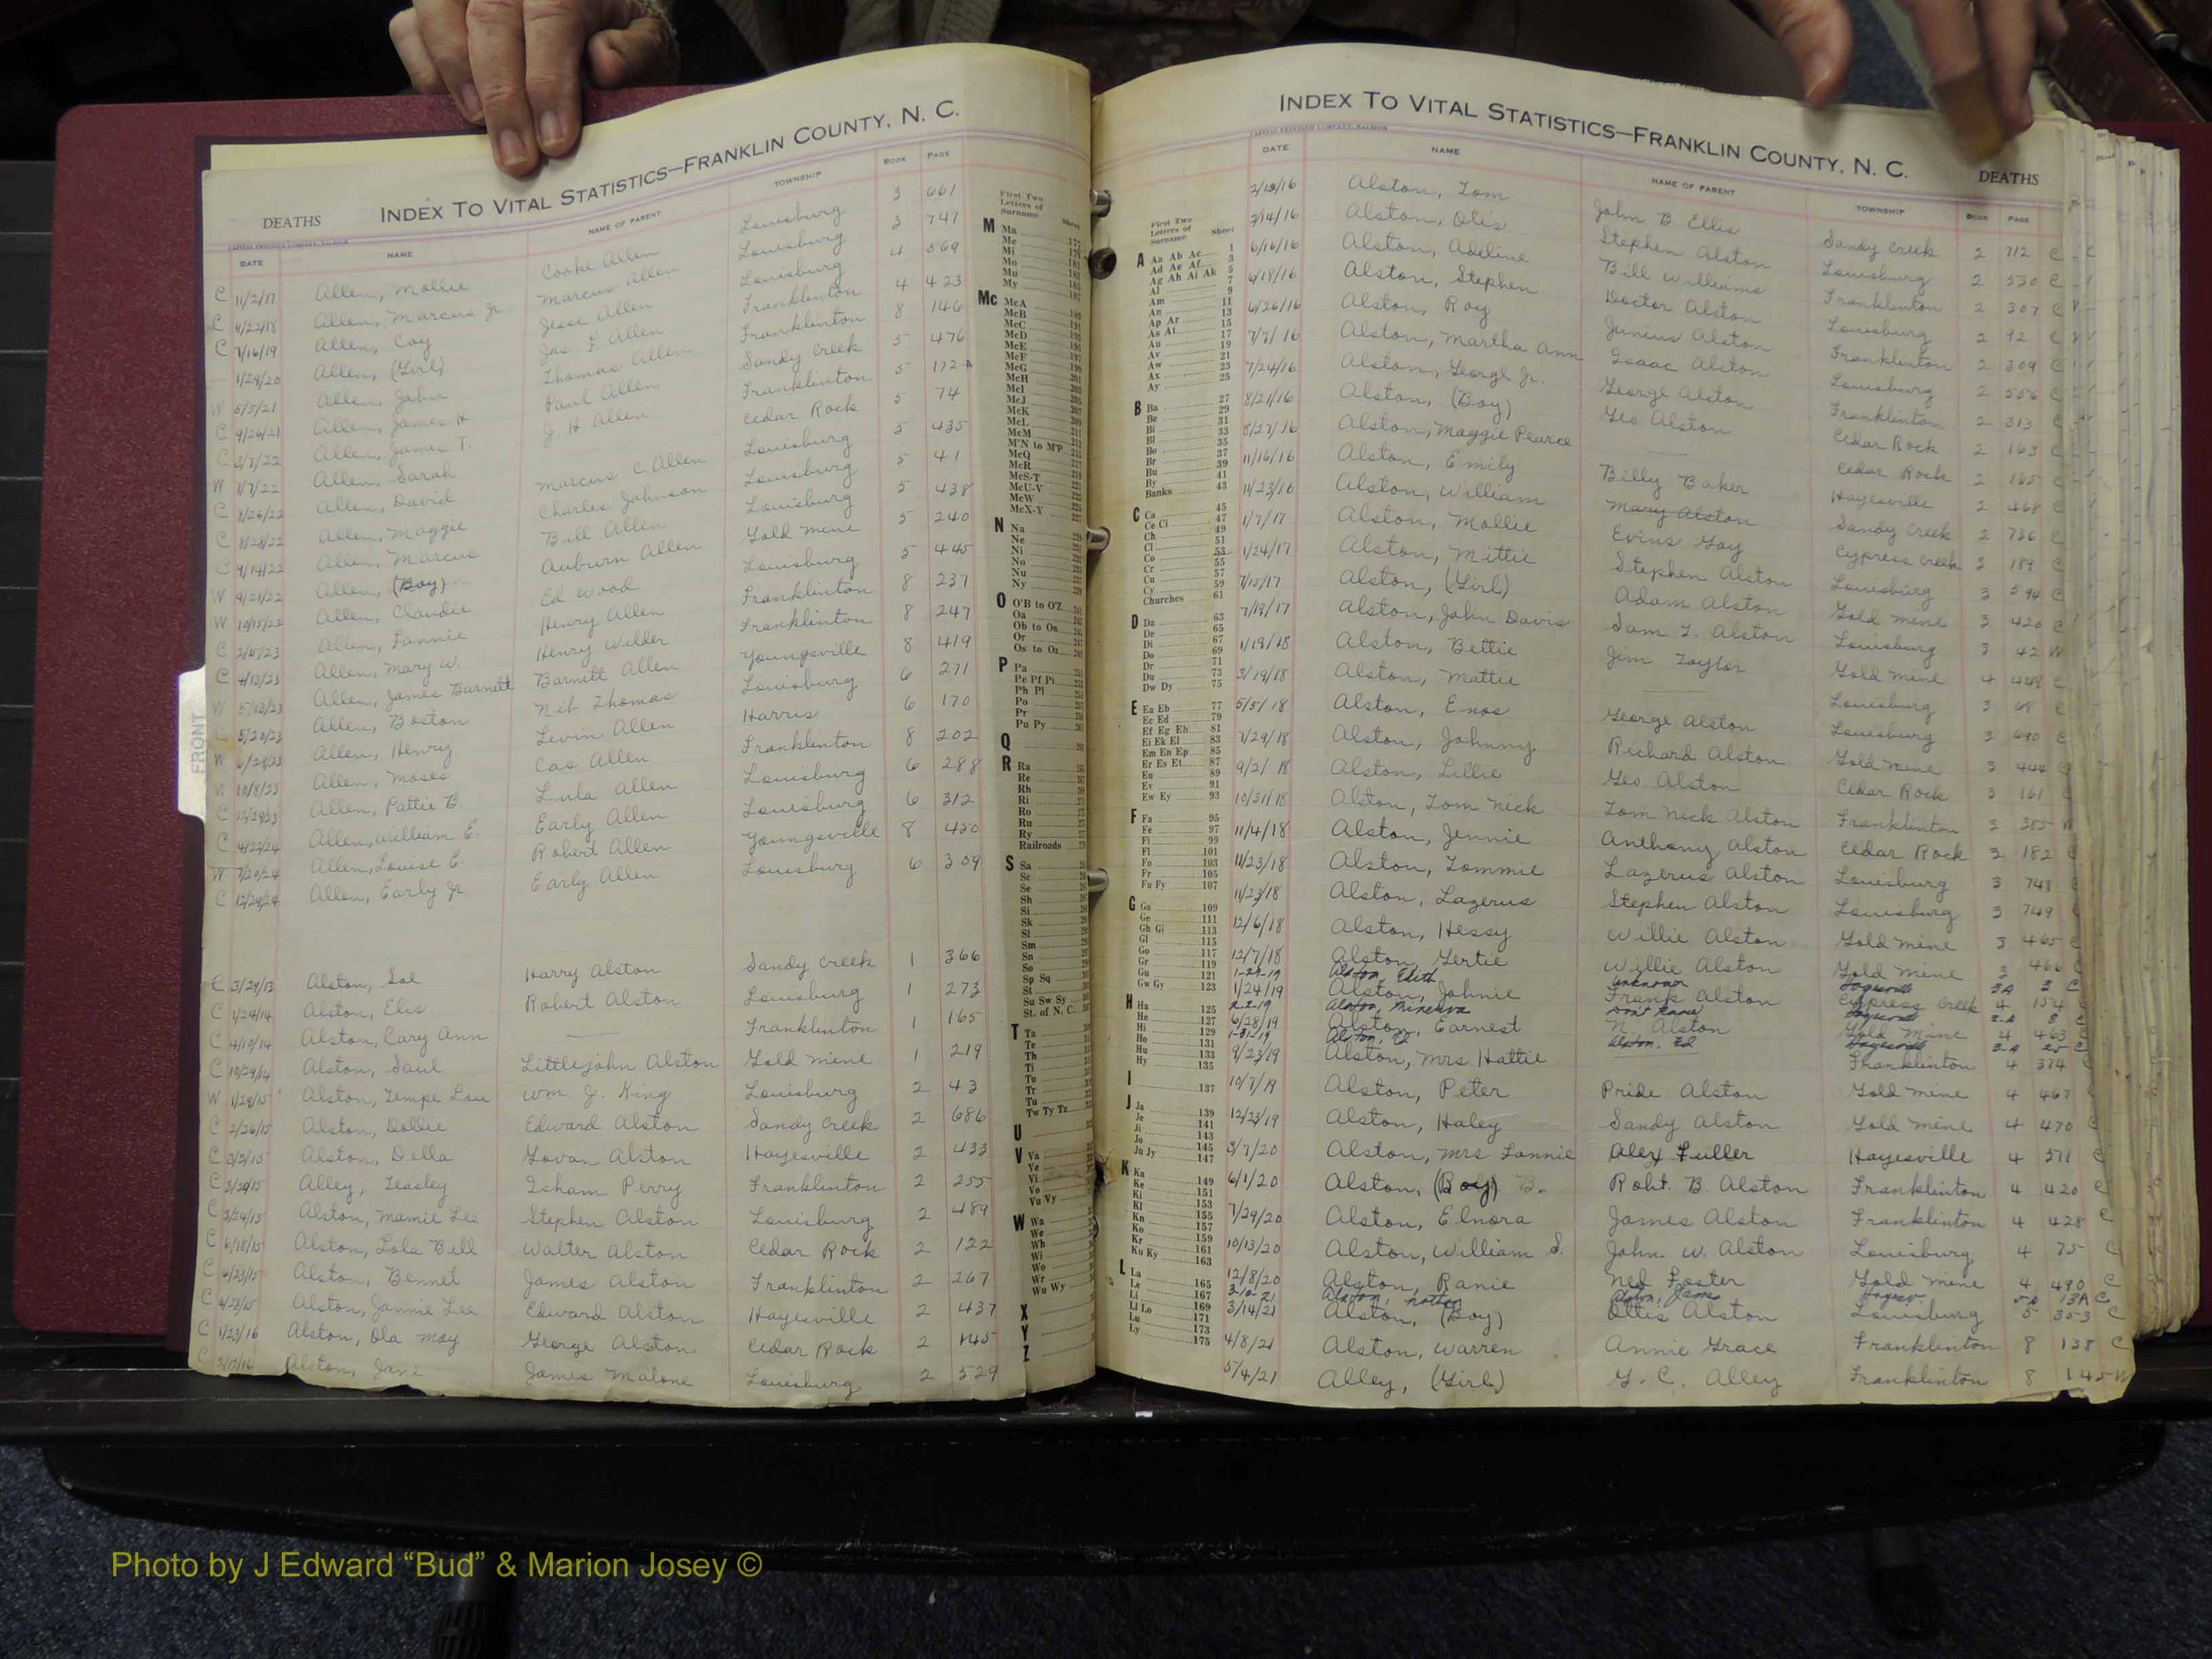 INDEX TO VITAL STATISTICS—FRANKLIN COUNTY, N. C.
DEATHS
DATE NAME NAME OF PARENT TOWNSHIP BOOK PAGE
C 11/2/17 Allen, Mollie Cooke Allen Louisburg 3 661
C 4/22/18 Allen, Marcus Jr Marcus Allen Louisburg 3 747
C 7/16/19 Allen, Coy Jesse Allen Louisburg 4 569
1/29/20 Allen, (Girl) Jas. F. Allen Franklinton 4 423
W 5/5/21 Allen, John Thomas Allen Franklinton 8 146
C 9/26/21 Allen, James H Paul Allen Sandy Creek 5 476
C 3/7/22 Allen, James T. J. H Allen Franklinton 5 172A
W 7/7/22 Allen, Sarah Cedar Rock 5 74
C 8/26/22 Allen, David Marcus C Allen Louisburg 5 435
C 8/28/22 Allen, Maggie Charles Johnson Louisburg 5 41
C 9/14/22 Allen, Marcus Bill Allen Louisburg 5 438
W 9/21/22 Allen, (Boy) Auburn Allen Gold Mine 5 240
W 10/15/22 Allen, Claudie Ed Wood Louisburg 5 445
C Allen, Fannie Henry Allen Franklinton 8 237
C 4/12/23 Allen, Mary W. Henry Wilder Franklinton 8 247
W 5/13/23 Allen, James Barnett Barnett Allen Youngsville 8 419
C 5/20/23 Allen, Boston Neb Thomas Louisburg 6 271
W 6/29/23 Allen, Henry Levin Allen Harris 6 170
W Allen, Moses Cas Allen Franklinton 8 202
C 12/29/23 Allen, Pattie B Lula Allen Louisburg 6 288
C 4/22/24 Allen, William E. Early Allen Louisburg 6 312
W 7/20/24 Allen, Louise E. Robert Allen Youngsville 8 450
C 12/29/24 Allen, Early Jr Early Allen Louisburg 6 309
C 3/29/13 Alston, Sol Harry Alston Sandy Creek 1 366
C 1/24/14 Alston, Elis Robert Alston Louisburg 1 273
C 4/10/14 Alston, Cary Ann Franklinton 1 165
C 10/29/14 Alston, Saul Littlejohn Alston Gold Mine 1 219
W 1/29/15 Alston, Tempe Lou Wm. J. King Louisburg 2 43
C 2/26/15 Alston, Dollie Edward Alston Sandy Creek 2 686
C 3/3/15 Alston, Della Govan Alston Hayesville 2 433
C 3/20/15 Alley, Teasley Isham Perry Franklinton 2 255
C 3/24/15 Alston, Mamie Lee Stephen Alston Louisburg 2 489
C 6/18/15 Alston, Lola Bell Walter Alston Cedar Rock 2 122
C 6/23/15 Alston, Bennet James Alston Franklinton 2 267
C Alston, Jannie Lee Edward Alston Hayesville 2 437
C 1/23/16 Alston, Ola May George Alston Cedar Rock 2 145
C Alston, Jane James Malone Louisburg 2 529
First Two Letters of Surname Sheet
M Ma
Me
Mi
Mo
Mu
My
Mc McA
McB
McC
McD
McE
McF
McG
McH
McI
McJ
McK
McL
McM
M'N to M'P
McQ
McR
McS-T
McU-V
McW
McX-Y
N Na
Ne
Ni
No
Nu
Ny
O O'B to O'Z
Oa
Ob to On
Or
Os to Oz
P Pa
Pe Pf Pi
Ph Pl
Po
Pr
Pu Py
Q
R Ra
Re
Rh
Ri
Ro
Ru
Ry
Railroads
S Sa
Sc
Se
Sh
Si
Sk
Sl
Sm
Sn
So
Sp Sq
St
Su Sw Sy
St. of N. C.
T Ta
Te
Th
Ti
To
Tr
Tu
Tw Ty Tz
U
V Va
Ve
Vi
Vo
Vu Vy
W Wa
We
Wh
Wi
Wo
Wr
Wu Wy
X
Y
Z
FRONT
INDEX TO VITAL STATISTICS—FRANKLIN COUNTY, N. C.
DEATHS
DATE NAME NAME OF PARENT TOWNSHIP BOOK PAGE
First Two Letters of Surname Sheet
A Aa Ab Ac 1
Ad Ae Af 3
Ag Ah Ai Ak 5
Al 7
9
Am 11
An 13
Ap Ar 15
As At 17
Au 19
Av 21
Aw 23
Ax 25
Ay
B Ba 27
Be 29
Bi 31
Bl 33
Bo 35
Br 37
Bu 39
By 41
Banks 43
C Ca 45
Ce Ci 47
Ch 49
Cl 51
Co 53
Cr 55
Cu 57
Cy 59
Churches 61
D Da 63
De 65
Di 67
Do 69
Dr 71
Du 73
Dw Dy 75
E Ea Eb 77
Ec Ed 79
Ef Eg Eh 81
Ei Ek El 83
Em En Ep 85
Er Es Et 87
Eu 89
Ev 91
Ew Ey 93
F Fa 95
Fe 97
Fi 99
Fl 101
Fo 103
Fr 105
Fu Fy 107
G Ga 109
Ge 111
Gh Gi 113
Gl 115
Go 117
Gr 119
Gu 121
Gw Gy 123
H Ha 125
He 127
Hi 129
Ho 131
Hu 133
Hy 135
I 137
J Ja 139
Je 141
Ji 143
Jo 145
Ju Jy 147
K Ka 149
Ke 151
Ki 153
Kn 155
Ko 157
Kr 159
Ku Ky 161
163
L La 165
Le 167
Li 169
Ll Lo 171
Lu 173
Ly 175
Alston, Tom John B Ellis Sandy Creek 2 712 C
2/14/16 Alston, Otis Stephen Alston Louisburg 2 530 C
6/16/16 Alston, Adeline Bill Williams Franklinton 2 307 C
6/18/16 Alston, Stephen Doctor Alston Louisburg 2 92 C
6/26/16 Alston, Roy Junius Alston Franklinton 2 309 C
7/7/16 Alston, Martha Ann Isaac Alston Louisburg 2 556 C
7/24/16 Alston, George Jr. George Alston Franklinton 2 313 C
8/21/16 Alston, (Boy) Geo Alston Cedar Rock 2 163 C
8/27/16 Alston, Maggie Pearce Cedar Rock 2 165 C
11/16/16 Alston, Emily Billy Baker Hayesville 2 468 C
11/23/16 Alston, William Mary Alston Sandy Creek 2 736 C
1/7/17 Alston, Mollie Evins Gay Cypress Creek 3 189 C
1/24/17 Alston, Mittie Stephen Alston Louisburg 3 594 C
7/15/17 Alston, (Girl) Adam Alston Gold Mine 3 420 C
7/19/17 Alston, John Davis Sam T. Alston Louisburg 3 42 W
1/19/18 Alston, Bettie Jim Taylor Gold Mine 4 448 C
3/19/18 Alston, Mattie Louisburg 3 68 C
5/5/18 Alston, Enos George Alston Louisburg 3 690 C
7/29/18 Alston, Johnny Richard Alston Gold Mine 3 444 C
9/2/18 Alston, Lillie Geo. Alston Cedar Rock 3 161 C
10/31/18 Alston, Tom Nick Tom Nick Alston Franklinton 3 355
11/4/18 Alston, Jennie Anthony Alston Cedar Rock 3 182 C
11/23/18 Alston, Tommie Lazerus Alston Louisburg 3 748 C
11/23/18 Alston, Lazerus Stephen Alston Louisburg 3 749 C
12/6/18 Alston, Hessy Willie Alston Gold Mine 3 465 C
12/7/18 Alston, Gertie Willie Alston Gold Mine 3 466 C
1-29-19 Alston, Edith Unknown 3A 3 C
1/24/19 Alston, Johnie Frank Alston Cypress Creek 4 154 C
2-2-19 Alston, Minerva Don't Know 3-A 8 C
6/28/19 Alston, Earnest N. Alston Gold Mine 4 463 C
Alston, Ed Alston, Ed 3-A 25 C
9/23/19 Alston, Mrs Hattie Franklinton 4 374
10/7/19 Alston, Peter Pride Alston Gold Mine 4 467
12/23/19 Alston, Haley Sandy Alston Gold Mine 4 470 C
3/7/20 Alston, Mrs Fannie Alex Fuller Hayesville 4 511 C
6/1/20 Alston, (Boy) B. Robt. B. Alston Franklinton 4 420 C
7/29/20 Alston, Elnora James Alston Franklinton 4 428 C
10/13/20 Alston, William S. John W. Alston Louisburg 4 75 C
12/8/20 Alston, Ranie Ned Foster Gold Mine 4 490 C
Alston, Alston, 5A 13A C
3/14/21 Alston, (Boy) Ottis Alston Louisburg 5 353 C
4/8/21 Alston, Warren Annie Grace Franklinton 8 138 C
5/4/21 Alley, (Girl) G. C. Alley Franklinton 8 145 W
Photo by J Edward “Bud” & Marion Josey ©